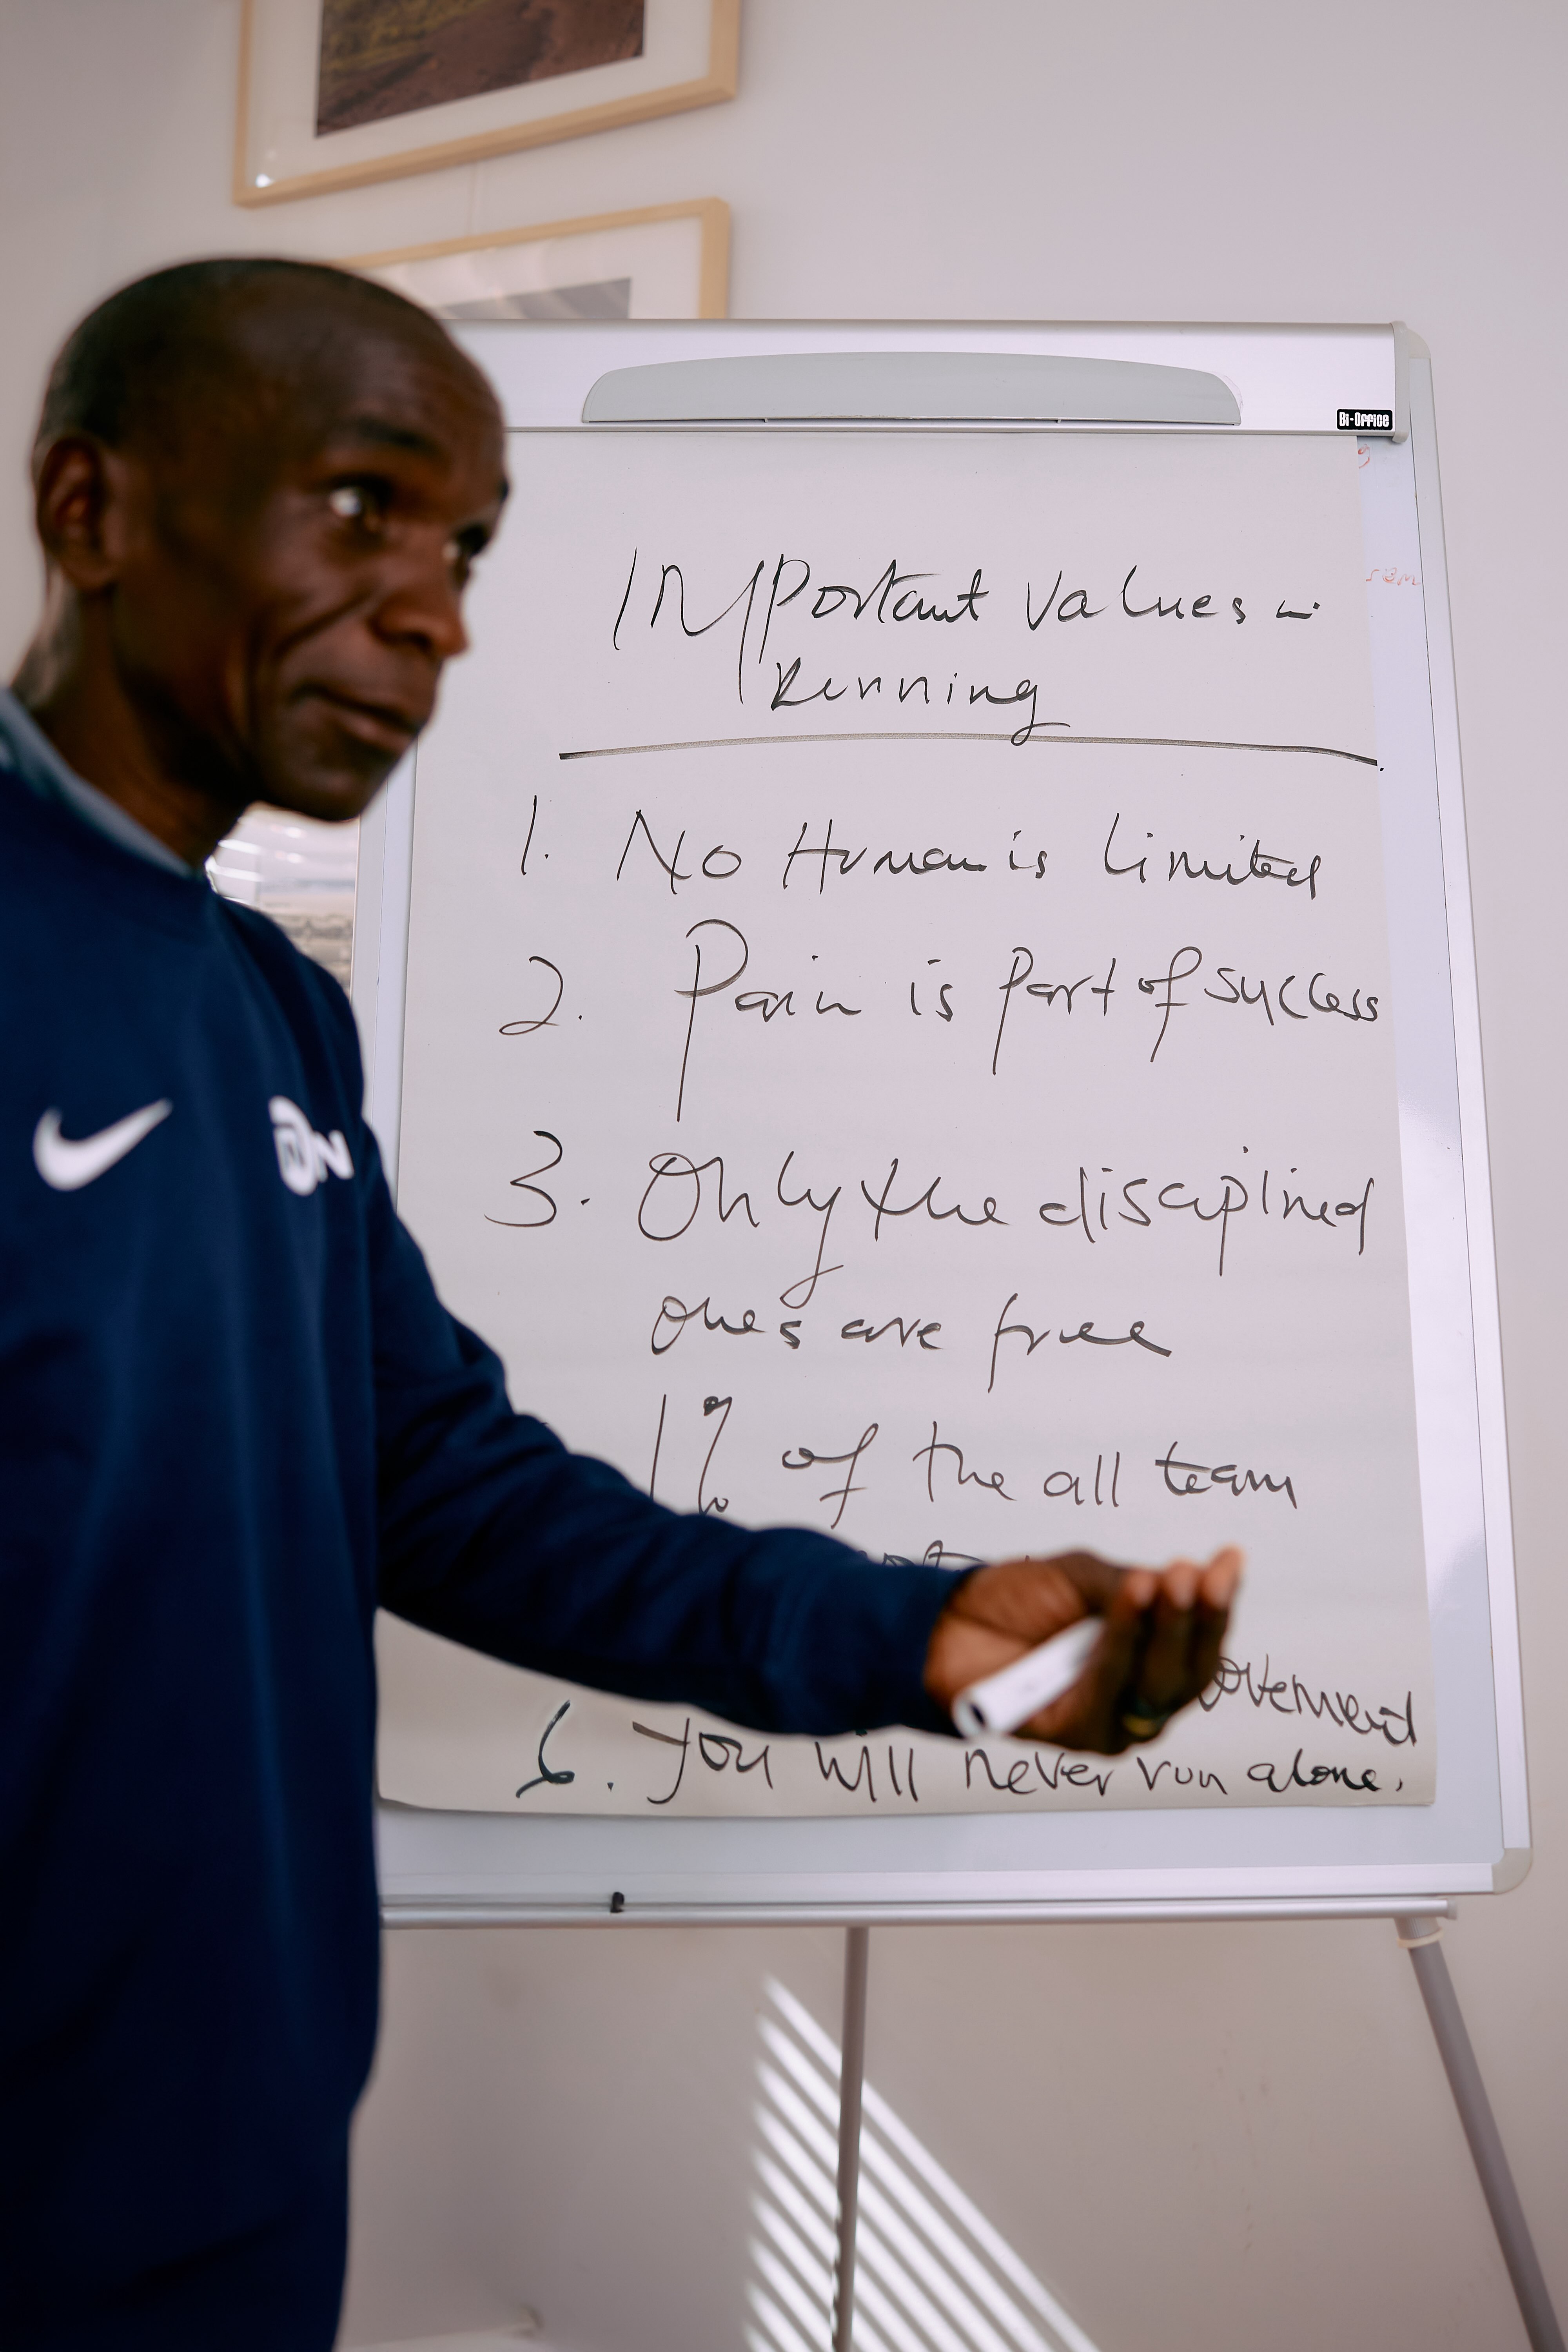 Bi-Office
Important values in
Running
1. No Human is limited
2. Pain is part of success
3. Only the disciplined
ones are free
1% of the all team
6. You will never run alone.